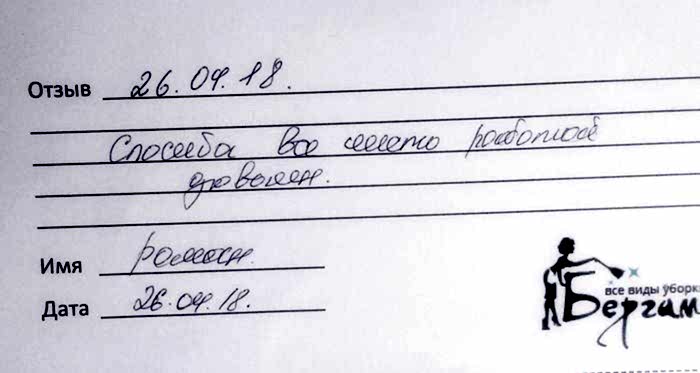 Отзыв 26.04.18.
Спосиба все чисто работай
доволен.
Имя Роман.
Дата 26.04.18.
все виды уборки
Бергам